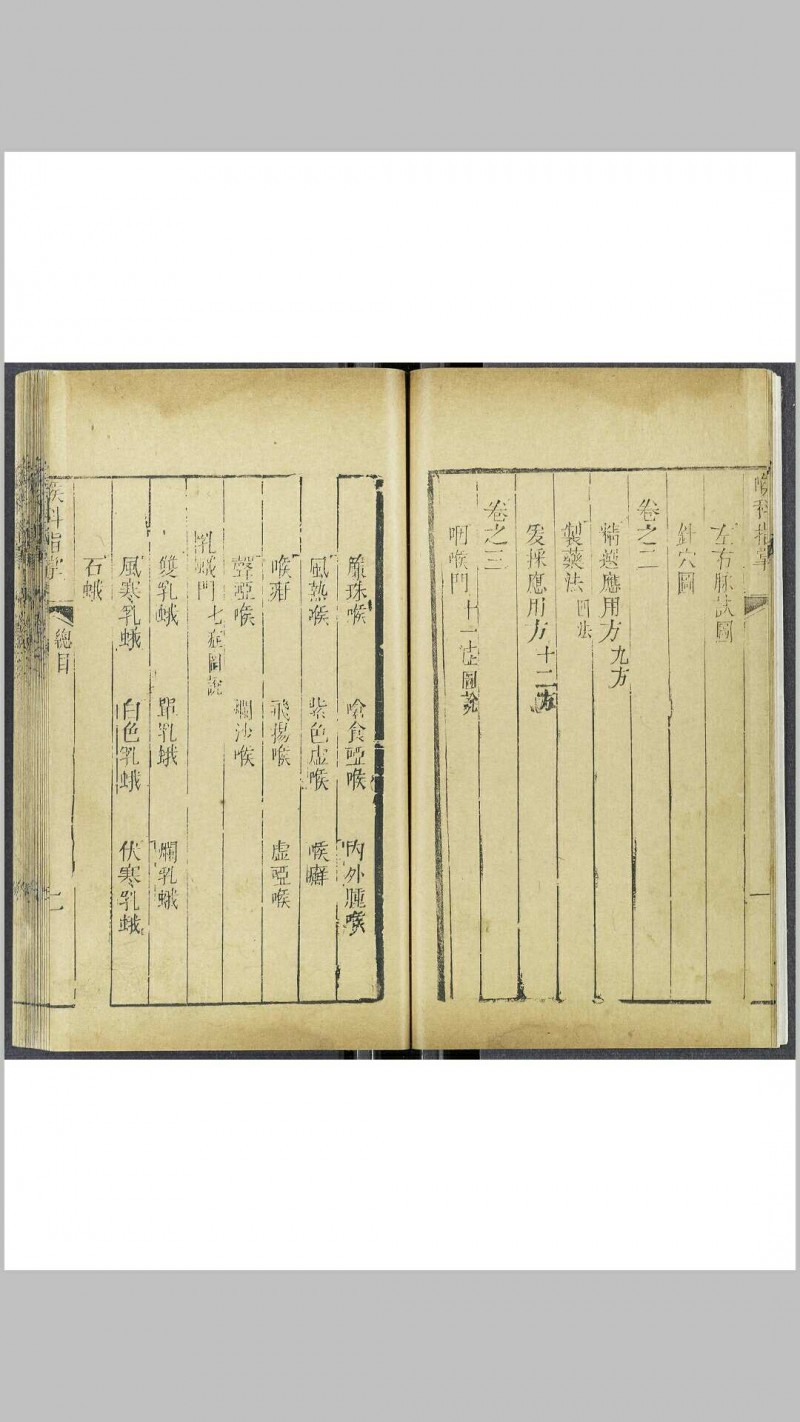 喉科指掌
左右脉訣圖
針穴圖
卷之二
精選應用方九方
製藥法四法
發採應用方十二方
卷之三
咽喉門十一症圖說
簾珠喉 嗆食啞喉 內外腫喉
風熱喉 紫色虛喉 喉癬
喉癰 飛揚喉 虛啞喉
聲啞喉 爛沙喉
乳蛾門七症圖說
雙乳蛾 單乳蛾 爛乳蛾
風寒乳蛾 白色乳蛾 伏寒乳蛾
石蛾
喉科指掌 總目 二